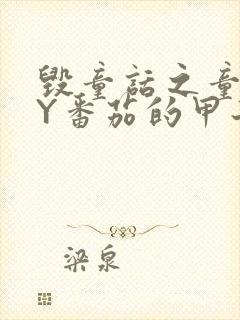 毁童话之童
Y番茄的甲
梁泉